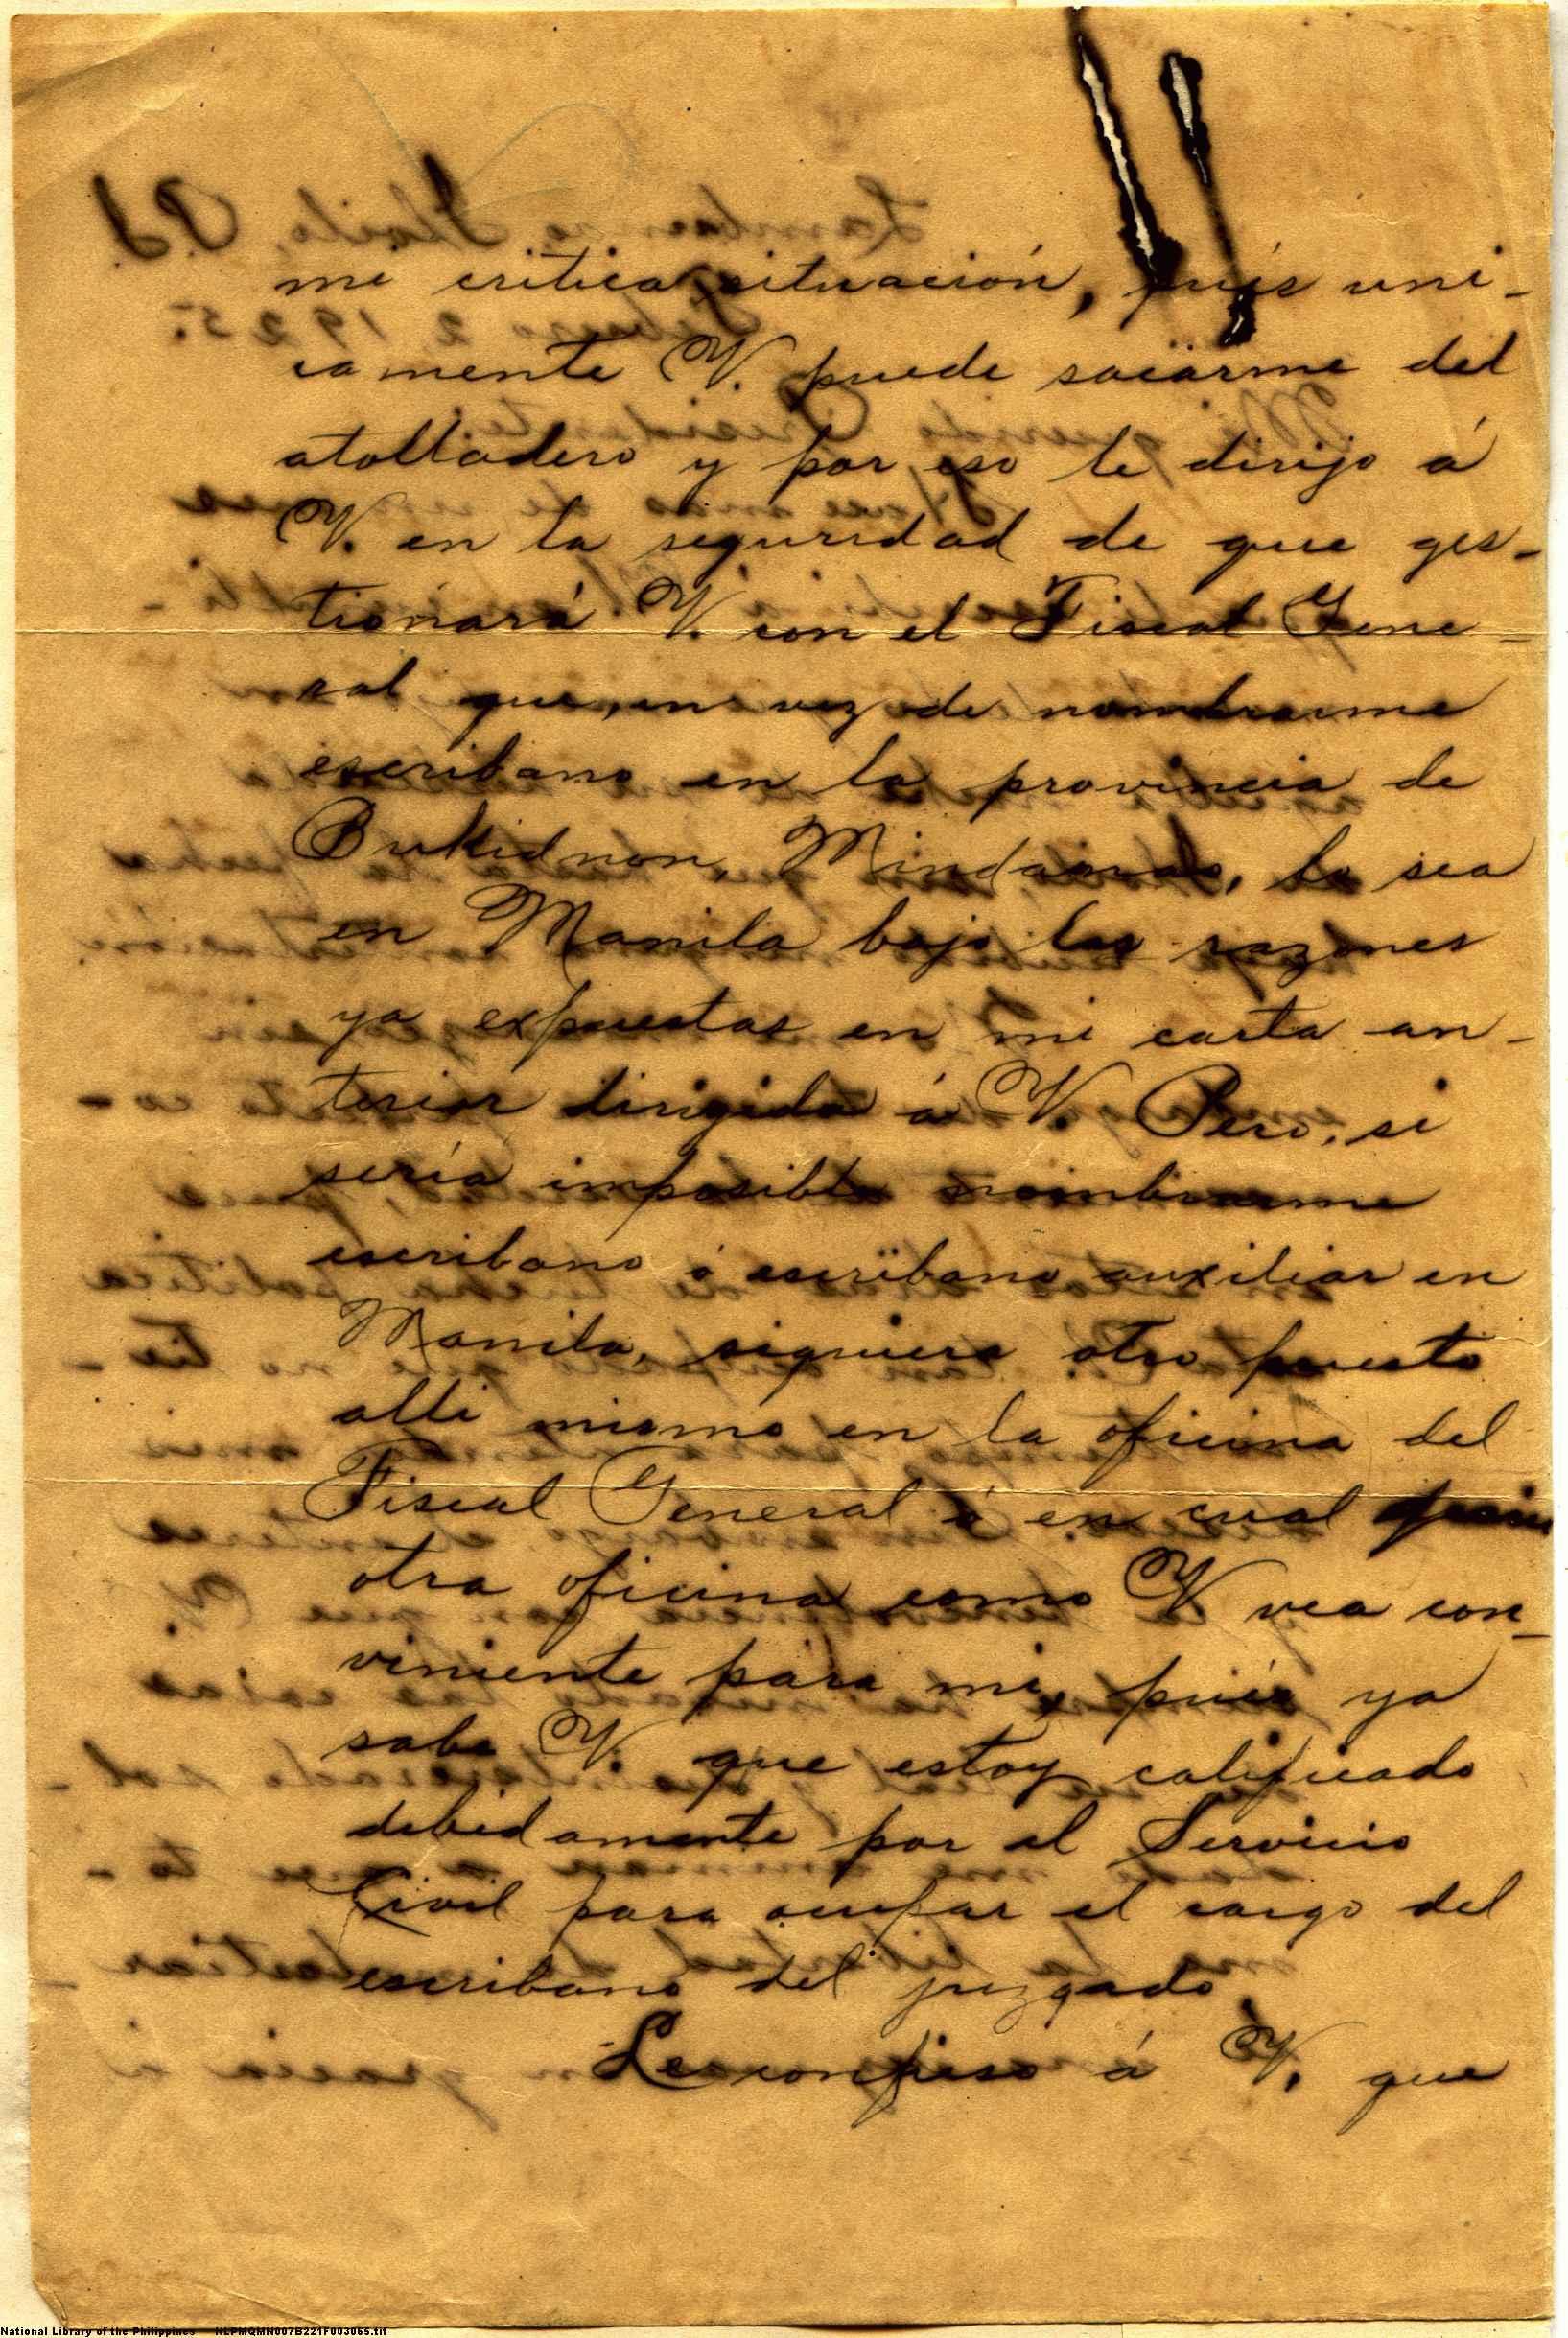 mi critica situación, pués uni-
camente V. puede sacarme del
atolladero y por eso le dirijo á
V. en la seguridad de que ges-
tionará V. con el Fiscal Gene-
ral que, en vez de nombrarme
escribano en la provincia de
Bukidnon, Mindanao, lo sea
en Manila bajo las razones
ya expuestas en mi carta an-
terior dirigida á V. Pero, si
sería imposible nombrarme
escribano ó escribano auxiliar en
Manila, siquiera otro puesto
alli mismo en la oficina del
Fiscal General ó en cual
otra oficina como V vea con-
viniente para mi, pués ya
sabe V. que estoy calificado
debidamente por el Servicio
Civil para ocupar el cargo del
escribano del juzgado.
Le confieso á V. que
National Library of the Philippines NLPMQMN007B221F003065.tif